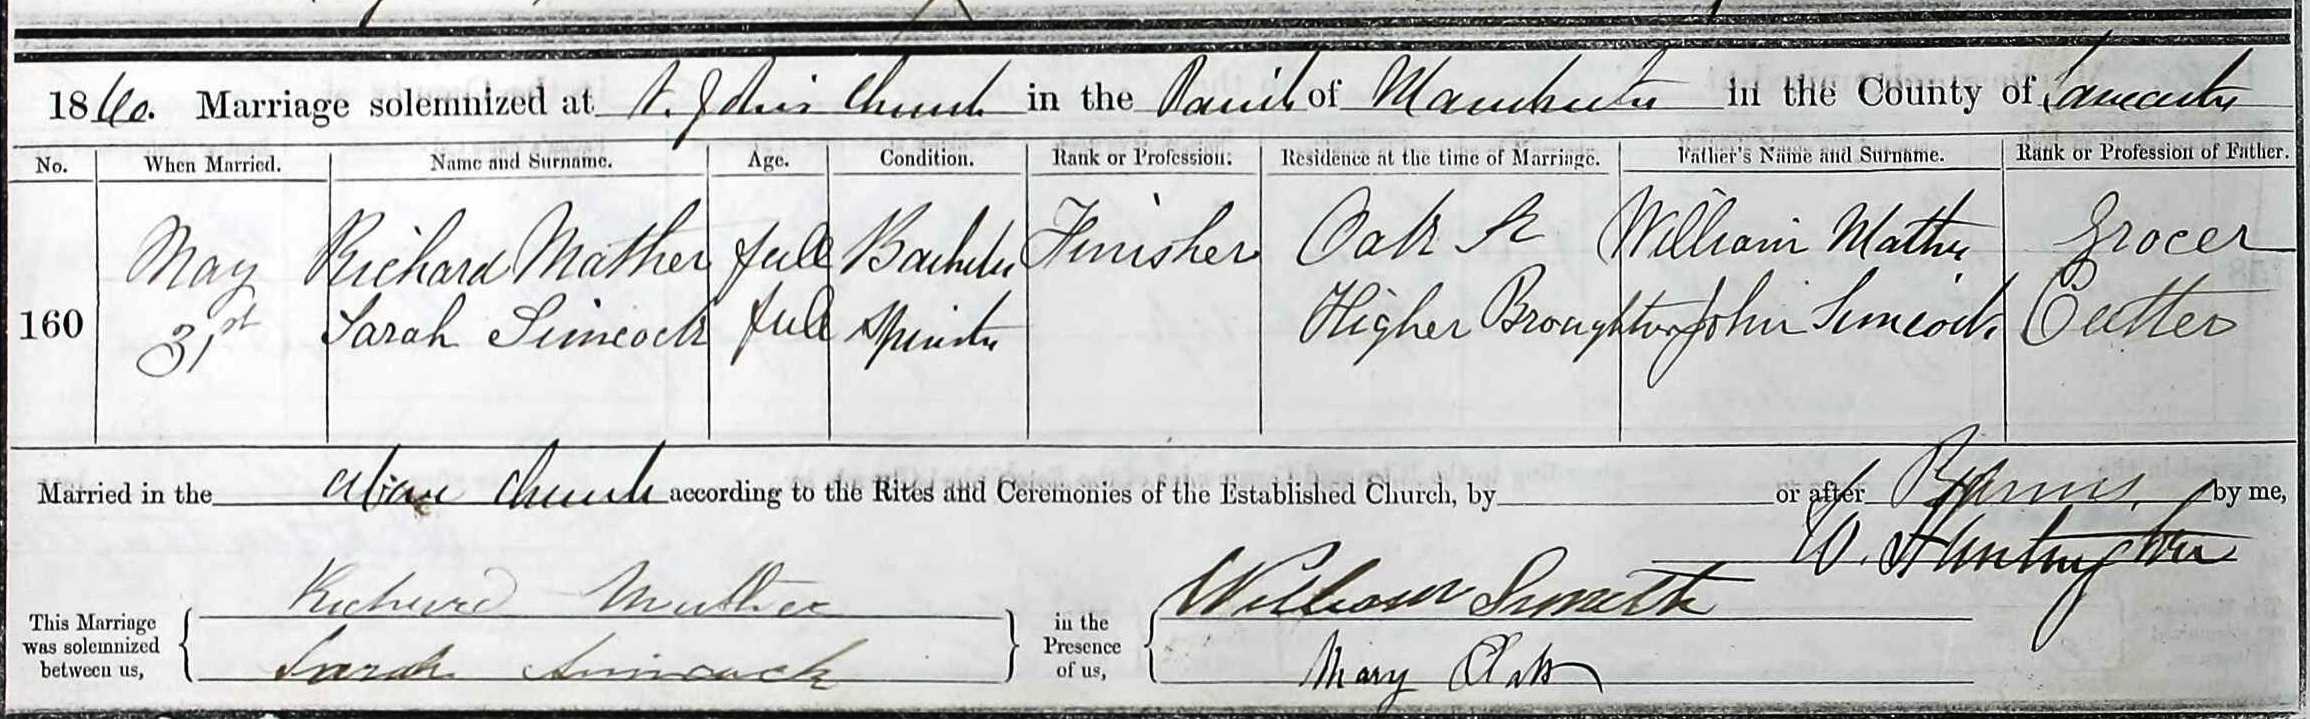 1860. Marriage solemnized at St. John's Church in the Parish of Manchester in the County of Lancaster
No. When Married. Name and Surname. Age. Condition. Rank or Profession. Residence at the time of Marriage. Father's Name and Surname. Rank or Profession of Father.
May Richard Mather full Bachelor Finisher Oak St William Mather Grocer
160 31st Sarah Simcock full Spinster Higher Broughton John Simcock
Married in the above Church according to the Rites and Ceremonies of the Established Church, by or after Banns, by me,
W. Huntington
This Marriage was solemnized between us,
Richard Mather
Sarah Simcock
in the Presence of us,
William Smith
Mary